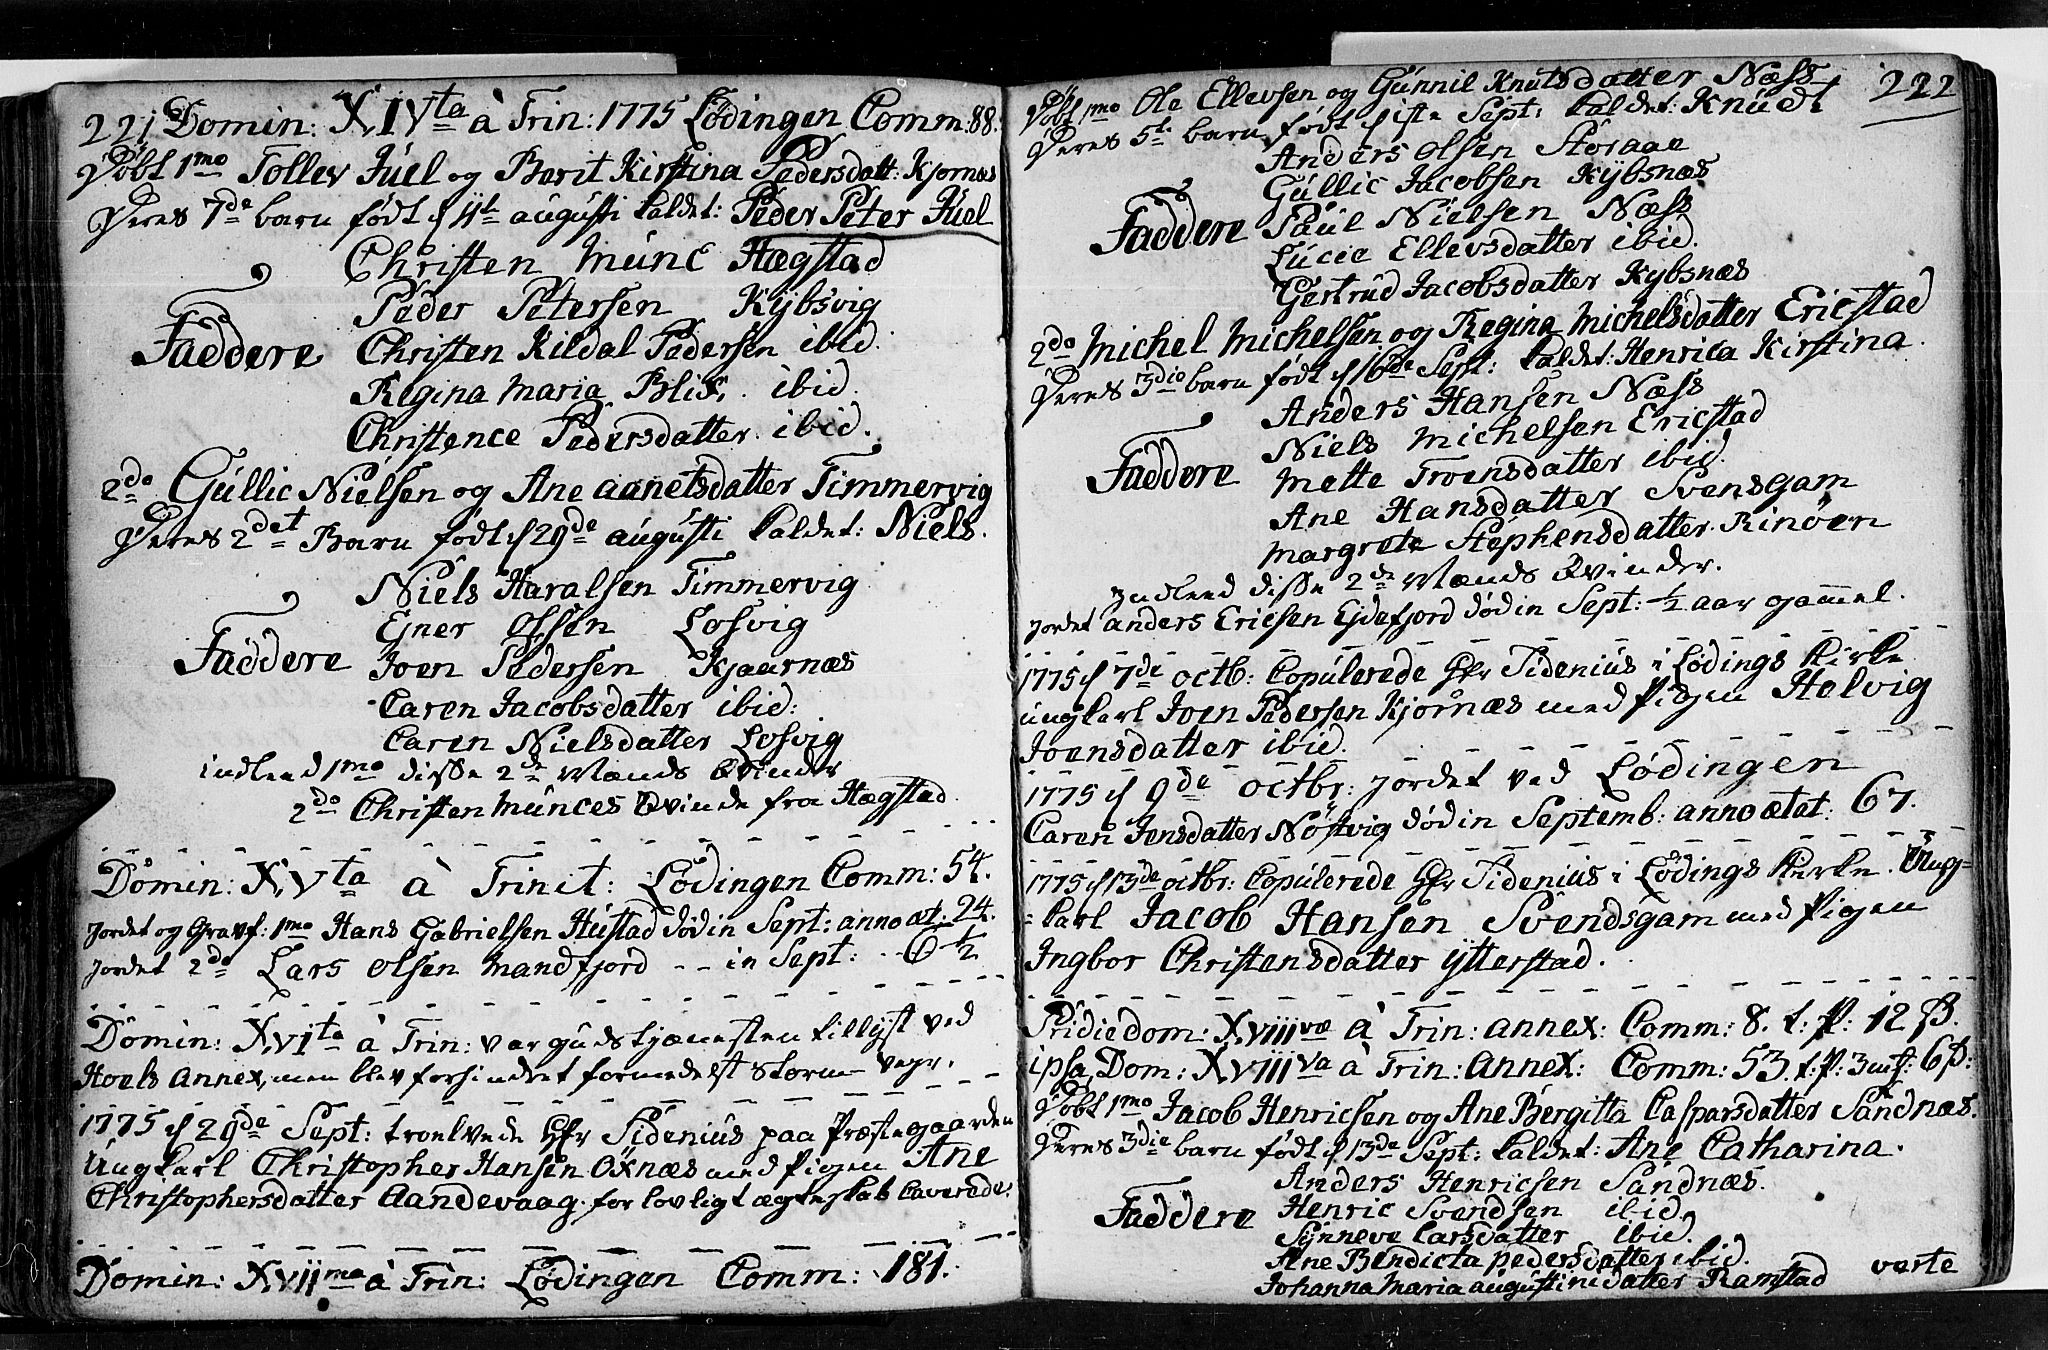 221 Domin: XIVta à Trin: 1775 Lødingen Comm: 88.
Døbt 1mo Tollev Juel og Berit Kirstina Pedersdatt: Kjørnæs
Deres 7de barn født d 4t augusti kaldet: Peder Peter Juel
Christen Munc Hægstad
Peder Petersen Kybsvig
Faddere Christen Kildal Pedersen ibid.
Regina Maria Blix. ibid.
Christence Pedersdatter ibid.
2do Gullic Nielsen og Ane aanetsdatter Timmervig
Deres 2det Barn født d 29de augusti kaldet: Niels.
Niels Haralsen Timmervig
Ejner Olsen Losvig
Faddere Joen Pedersen Kjaarnæs
Caren Jacobsdatter ibid:
Caren Nielsdatter Losvig
indleed 1mo disse 2de Mænds Qvinder
2do Christen Munces Qvinde fra Hægstad.
Domin: XVta à Trinit: Lødingen Comm: 54.
Jordet og Gravf: 1mo Hans Gabrielsen Hustad død in Sept: anno æt. 24.
Jordet 2do Lars Olsen Mandfjord -- in Sept: -- 6 1/2
Domin: XVIta à Trin: var gudstjænesten tillyst ved
Hoels Annex, men blev forhindret formedelst storm vejr.
1775 d 29de Sept: troelvede Hr Sidenius paa Præstegaarden
Ungkarl Christopher Hansen Öxnæs med Pigen Ane
Christophersdatter Aandevaag. for lovligt ægteskab Caverede
Domin: XVIIma à Trin: Lødingen Comm: 181.
222
Døbt 1mo Ole Ellevsen og Gunnil Knutsdatter Næss
Deres 5te barn født d iste Sept: kaldet: Knudt
Anders Olsen Storaae
Gullic Jacobsen Kybsnæs
Faddere Paul Nielsen Næss
Lucie Ellevsdatter ibid.
Gertrud Jacobsdatter Kybsnæs
2do Michel Michelsen og Regina Michelsdatter Ericstad
Deres 3die barn født d 16de Sept: kaldet: Henrica Kirstina.
Anders Hansen Næss
Niels Michelsen Ericstad
Faddere Mette Troensdatter ibid.
Ane Hansdatter Svensgam
Margrete Stephensdatter Rinöen
Indleed disse 2de Mænds Qvinder.
Jordet anders Ericsen Ejdefjord død in Sept: 1/2 aar gammel.
1775 d 7de octb: Copulerede Hr Sidenius i Lödings Kirke
ungkarl Joen Pedersen Kjørnæs med Pigen Helvig
Joensdatter ibid.
1775 d 9de octbr: jordet ved Lödingen
Caren Jensdatter Nöstvig död in Septemb: anno ætat: 67.
1775 d 13de octbr: Copulerede Hr Sidenius i Lödings Kirke. Ung-
-karl Jacob Hansen Svendsgam med Pigen
Ingbor Christensdatter Ytterstad.
Pridie dom: XVIIIvæ à Trin: annex: Comm: 8. t: P: 12 ß.
ipsa Dom: XVIIIva à Trin: Annex: Comm: 53. t: P: 3 mk: 6 ß:
Døbt 1mo Jacob Henricsen og Ane Bergitta Caspersdatter Sandnæs.
Deres 3die barn født d 13de Sept: kaldet: Ane Catharina.
Anders Henricsen Sandnæs.
Faddere Henric Svendsen ibid.
Synneve Larsdatter ibid.
Ane Bendicta pedersdatter ibid.
Johanna Maria augustinidatter Ramstad
verte